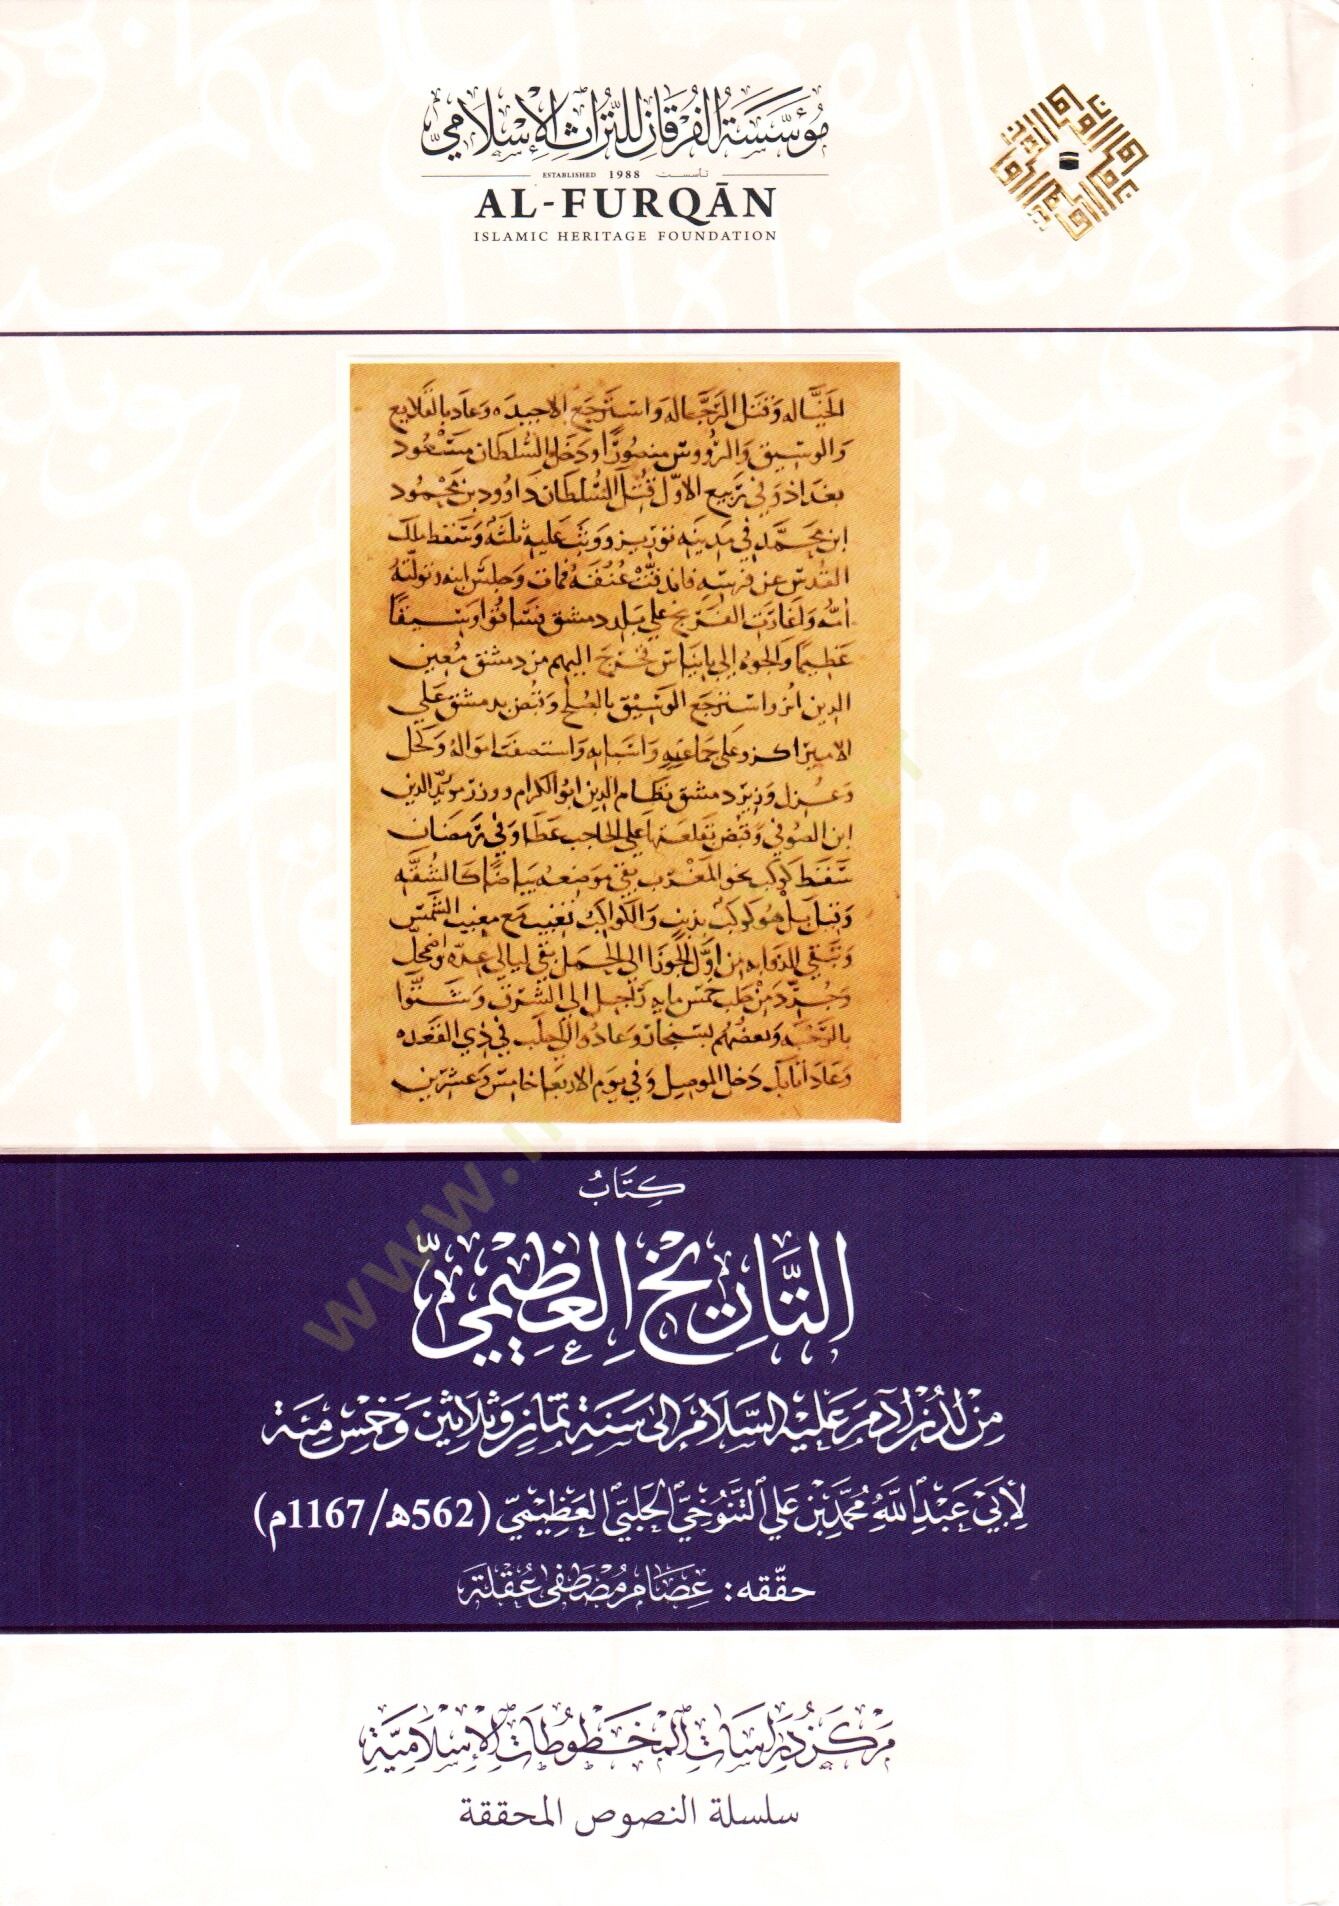 مُؤَسَّسَةُ الفُرْقَانِ لِلتُّرَاثِ الإِسْلَامِيِّ
ESTABLISHED 1988 تأسست
AL-FURQĀN
ISLAMIC HERITAGE FOUNDATION
الخيالة وقتل الرجالة واسترجع الاخيذه وعاد بالقلايع
والوسيق والرووس منصورا ودخل السلطان مسعود
بغداذ وفي ربيع الاول قتل السلطان داوود بن محمود
ابن محمد في مدينه توريز ووثب عليه ثلثه وسقط ملك
القدس عن فرسه فاندقت عنقه فمات وجلس ابنه وتولته
امه واغارت الفرنج على بلد دمشق فساقوا وسيقا
عظيما والجوه الى بانياس فخرج اليهم من دمشق معين
الدين انز واسترجع الوسيق بالصلح وقبض بدمشق على
الامير اكز وعلى جماعته واسبابه واستصفت امواله وكحل
وعزل وزير دمشق نظام الدين ابو الكرام ووزر مويد الدين
ابن الصوفي وقبض بقلعتها على الحاجب عطا وفي رمضان
سقط كوكب نحو المغرب بقي موضعه بياضا كالشقه
وقيل بل هو كوكب بذنب والكواكب تغيب مع مغيب الشمس
وتبقى الذوابه من اول الجوزا الى الحمل بقي ليالي عده واضمحل
وجرد من حلب خمس مايه راجل الى الشرق وشتوا
بالرحبه وبعضهم بسنجار وعادوا الى حلب في ذي القعده
وعاد اتابك دخل الموصل وفي يوم الاربعا خامس وعشرين
كِتَابُ
التَّارِيْخِ العَظِيْمِيّ
مِن لَدُن آدَمَ عَلَيْهِ السَّلَام إِلَى سَنَةِ ثَمَانٍ وَثَلَاثِينَ وَخَمْسِ مِئَة
لِأَبِي عَبْدِ اللَّهِ مُحَمَّد بْن عَلِي التَّنُوْخِيِّ الحَلَبِيِّ العَظِيْمِيّ (562هـ/1167م)
حقّقه: عِصَام مُصْطَفَى عُقْلَة
مَرْكَز دِرَاسَاتِ المَخْطُوطَاتِ الإِسْلَامِيَّةِ
سلسلة النصوص المحققة